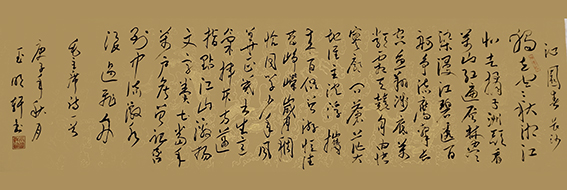 沁园春 长沙
独立寒秋湘江
北去橘子洲头看
万山红遍层林尽
染漫江碧透百
舸争流鹰击长
空鱼翔浅底万
类霜天竞自由怅
寥廓问苍茫大
地谁主沉浮携
来百侣曾游忆往
昔峥嵘岁月稠
恰同学少年风
华正茂书生意
气挥斥方遒
指点江山激扬
文字粪土当年
万户侯曾记否
到中流击水
浪遏飞舟
毛主席诗一首
庚子年秋月